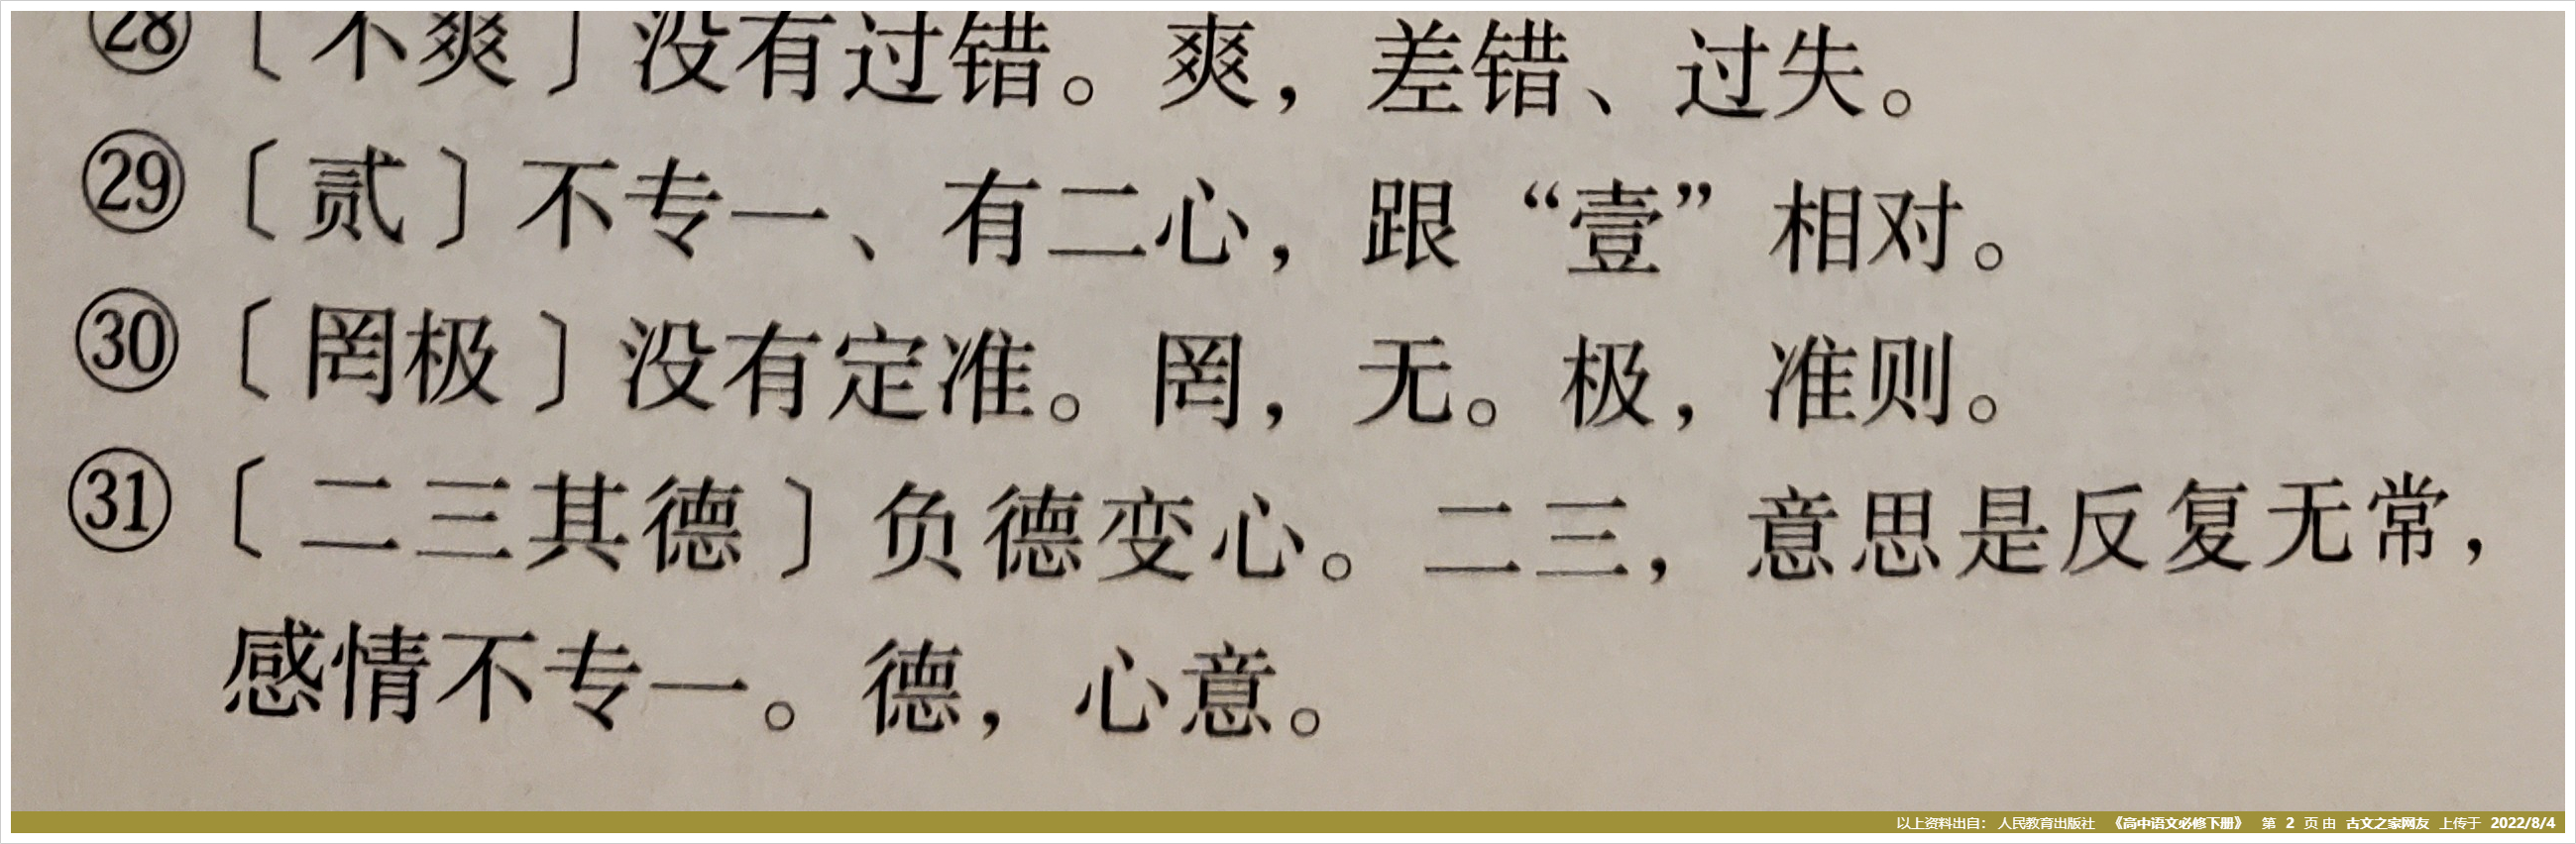 ㉘〔不爽〕没有过错。爽，差错、过失。
㉙〔贰〕不专一、有二心，跟“壹”相对。
㉚〔罔极〕没有定准。罔，无。极，准则。
㉛〔二三其德〕负德变心。二三，意思是反复无常，
感情不专一。德，心意。
以上资料出自： 人民教育出版社 《高中语文必修下册》 第 2 页 由 古文之家网友 上传于 2022/8/4